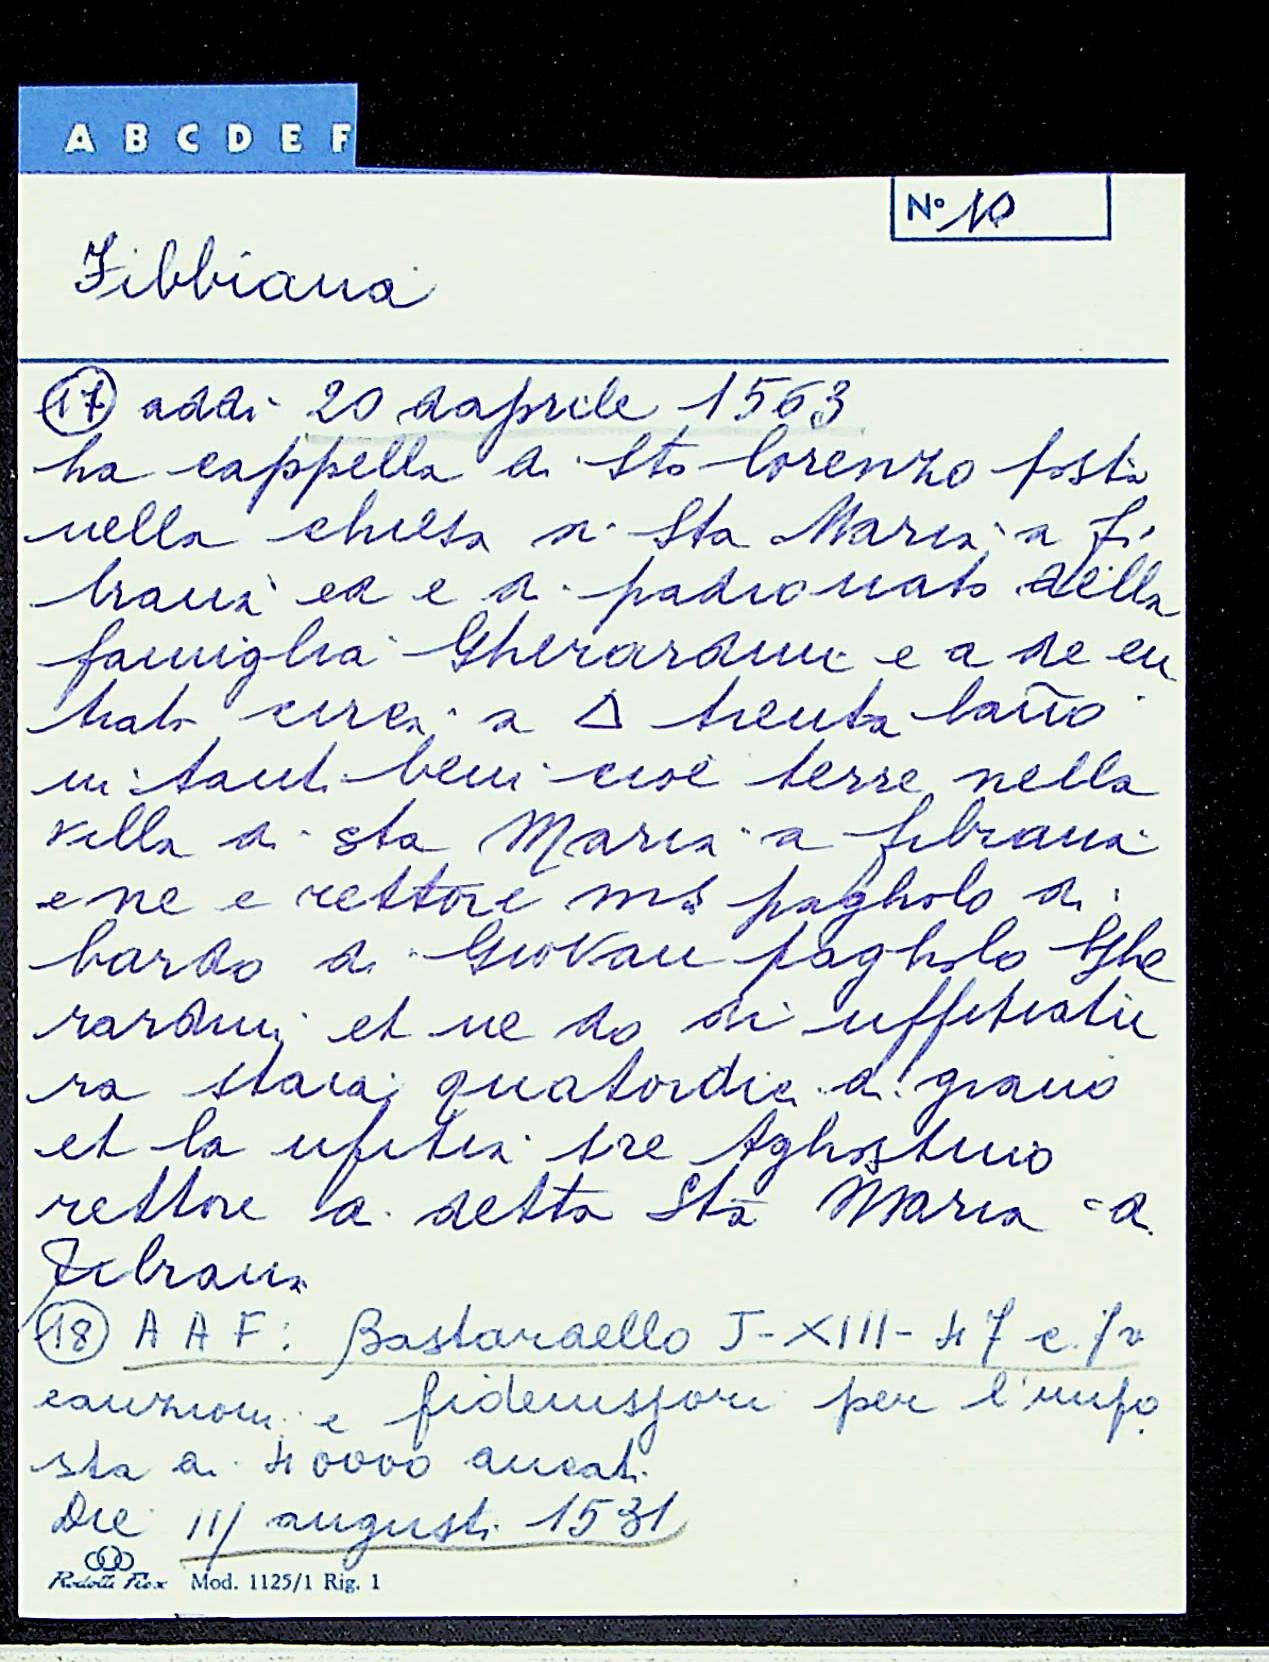 A B C D E F
Nº 10
Fibbiana
17 addi 20 daprile 1563
La cappella di Sto Lorenzo posta
nella chiesa di Sta Maria a Fi
briana ed e di padronato della
famiglia Gherardini e a de en
trata circa a Δ trenta lanño
in tanti beni cioè terre nella
villa di sta Maria a fibriana
e ne e rettore ms pagholo di
bardo di Giovan pagholo Ghe
rardini et ne do di uffitiatu
ra staia quatordici di grano
et la ufitia Aghostino
rettore di detta Sta Maria a
Fibriana
18 A A F: Bastardello J-XIII-47 c. 7v
cauzioni e fideiussori per l'impo
sta di 40000 ducati
Die III augusti 1531
Mod. 1125/1 Rig. 1